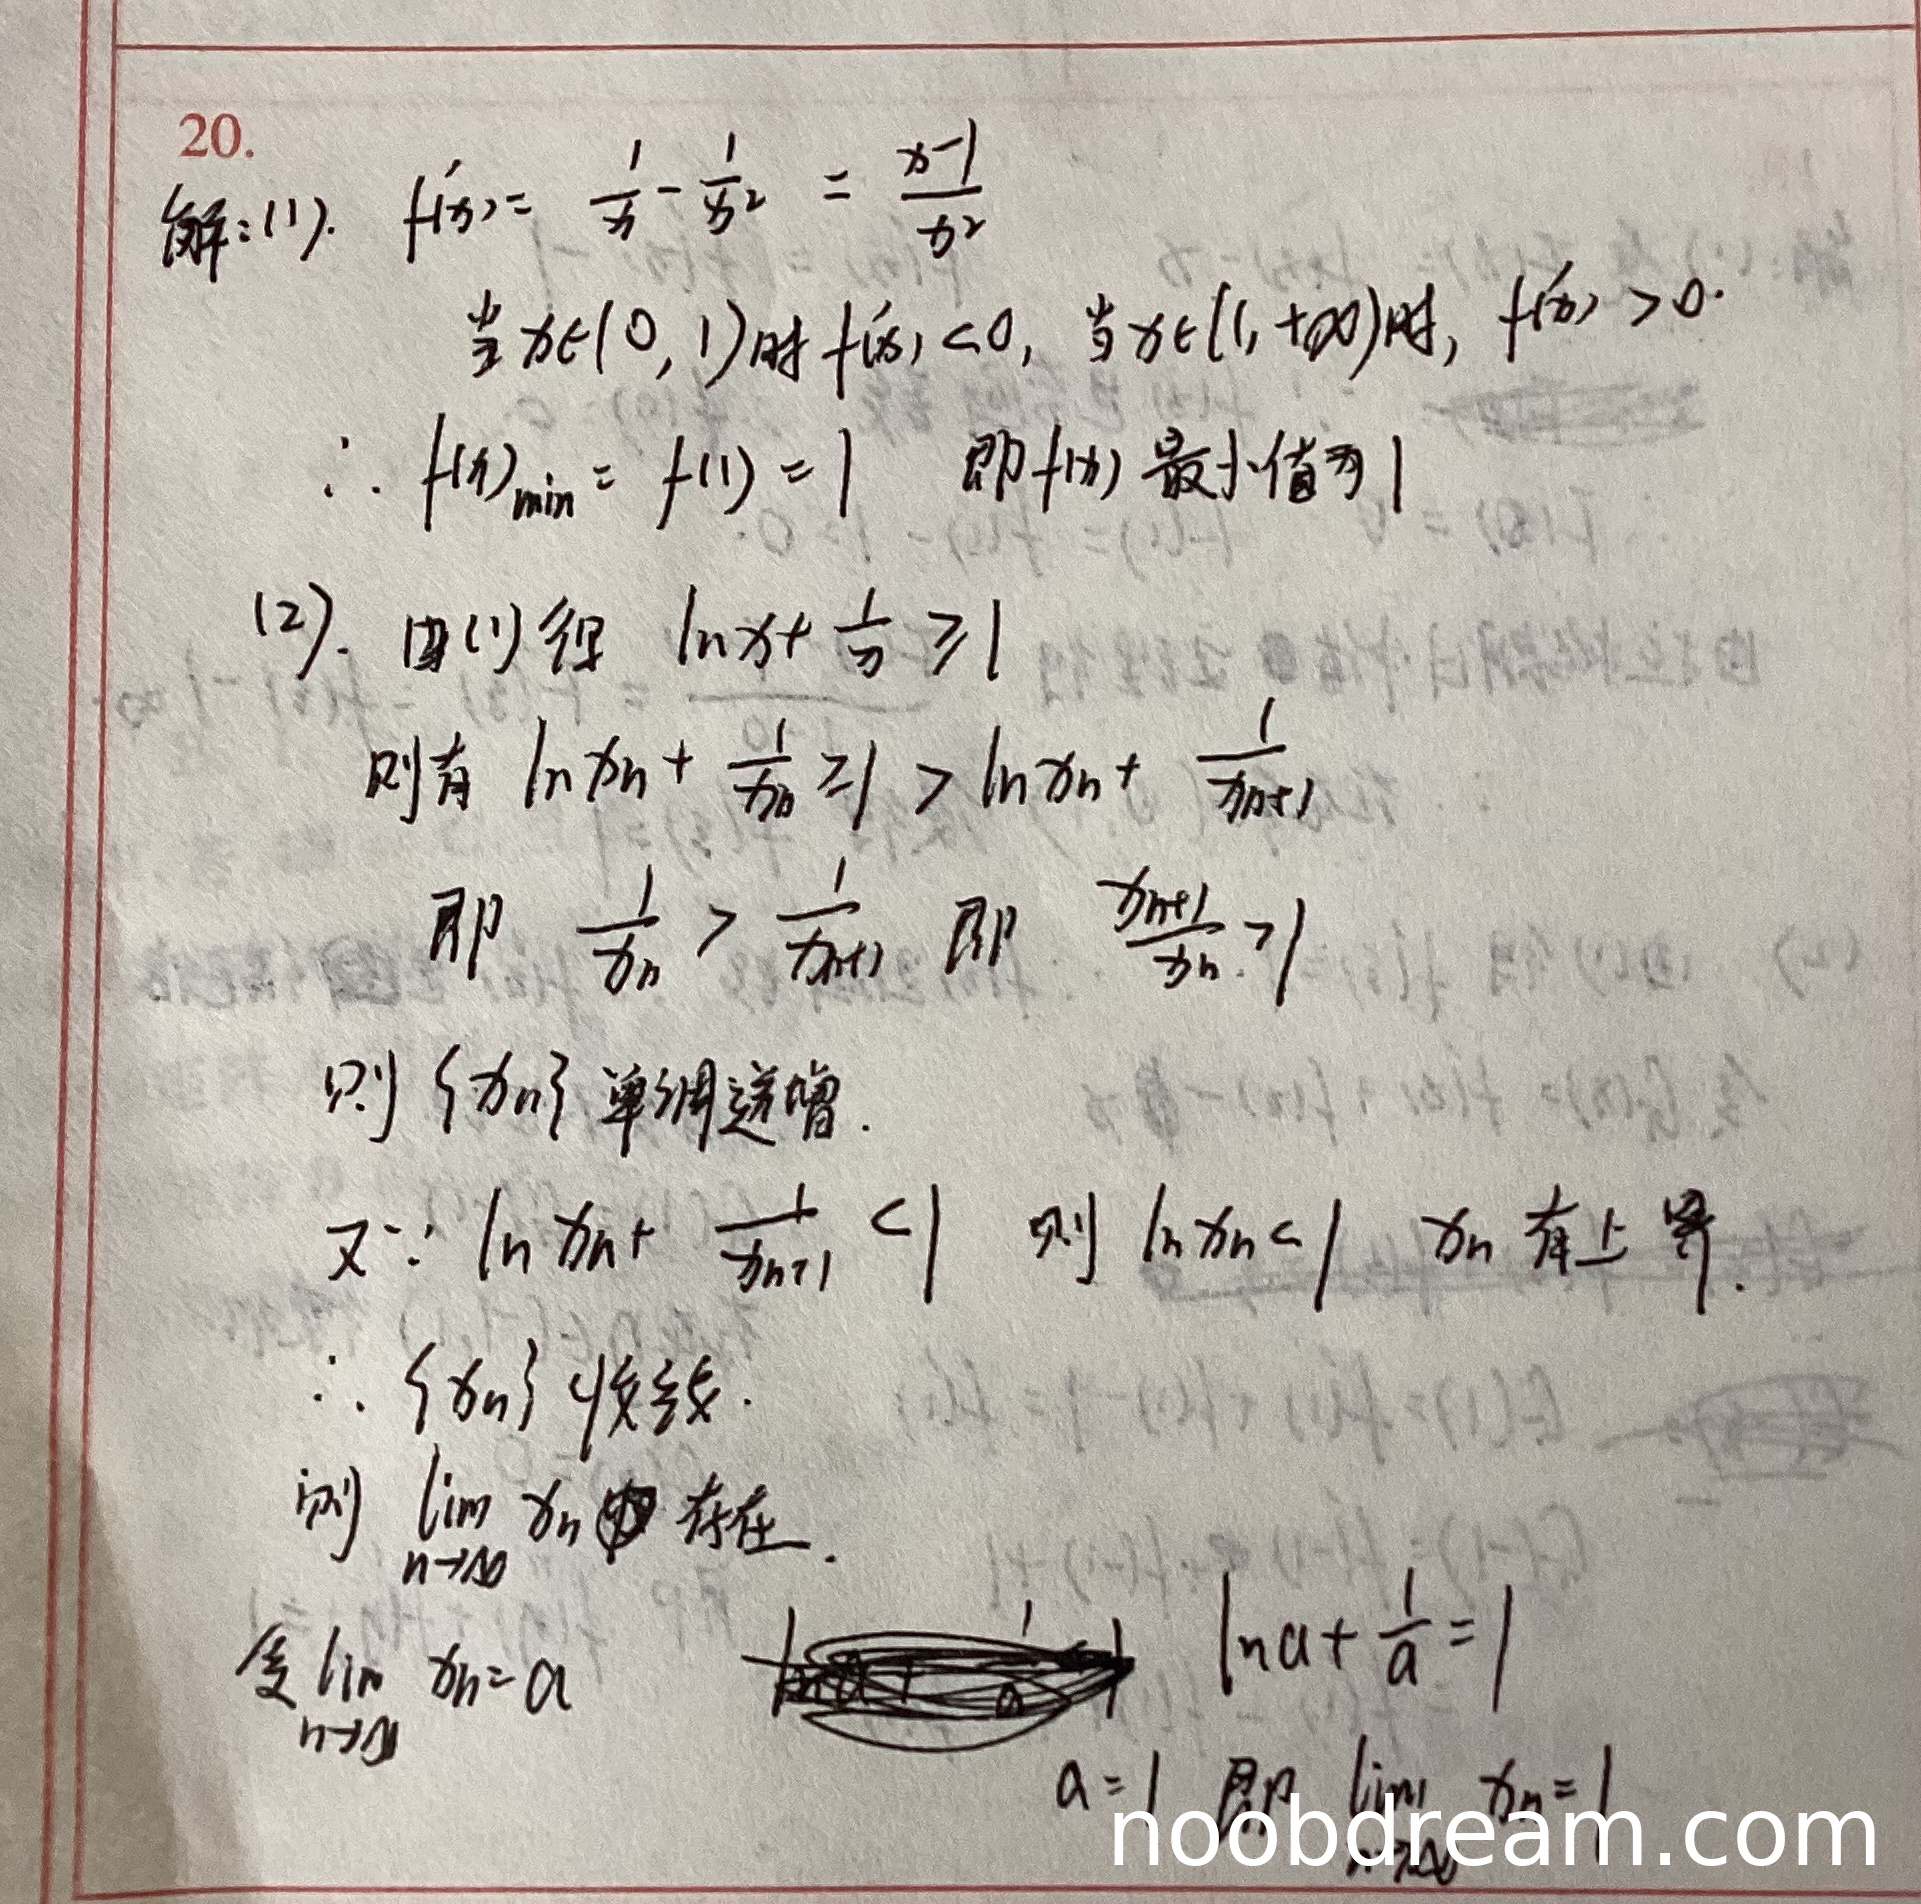 20.
解:(1). f'(x)= 1/x - 1/x² = (x-1)/x²
当x∈(0,1)时f'(x)<0, 当x∈(1,+∞)时, f'(x)>0.
∴ f(x)min = f(1) = 1 即f(x)最小值为1
(2). 由(1)得 lnx+ 1/x ≥1
则有 ln xn + 1/xn ≥1 > ln xn + 1/xn+1
即 1/xn > 1/xn+1 即 xn+1/xn >1
则{xn}单调递增.
又∵ ln xn + 1/xn+1 <1 则 ln xn<1 xn 有上界.
∴ {xn}收敛.
则 lim n→∞ xn 存在.
令 lim n→∞ xn=a ln a + 1/a =1
a=1 即 lim n→∞ xn=1
noobdream.com